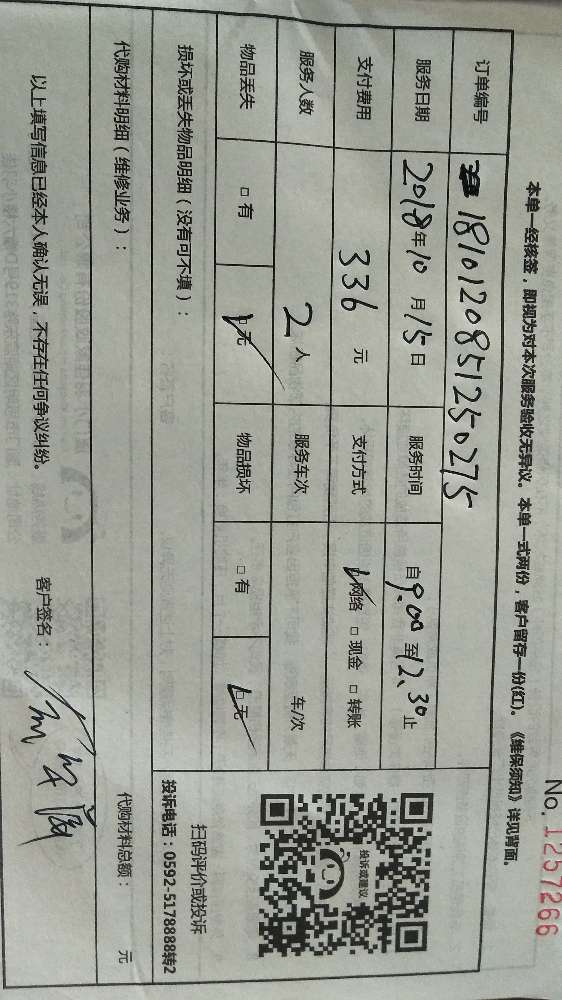 No. 1257266
本单一经核签，即视为对本次服务验收无异议。本单一式两份，客户留存一份(红)。《维保须知》详见背面。
订单编号 1810120851250275
服务日期 2018年10月15日 服务时间 自9.00至12.30止
支付费用 336元 支付方式 网络 □现金 □转账
服务人数 2人 服务车次 车/次
物品丢失 □有 □无 物品损坏 □有 □无
损坏或丢失物品明细（没有可不填）：
投诉或建议
扫码评价或投诉
投诉电话：0592-5178888转2
代购材料明细（维修业务）：
代购材料总额： 元
以上填写信息已经本人确认无误，不存在任何争议纠纷。 客户签名：